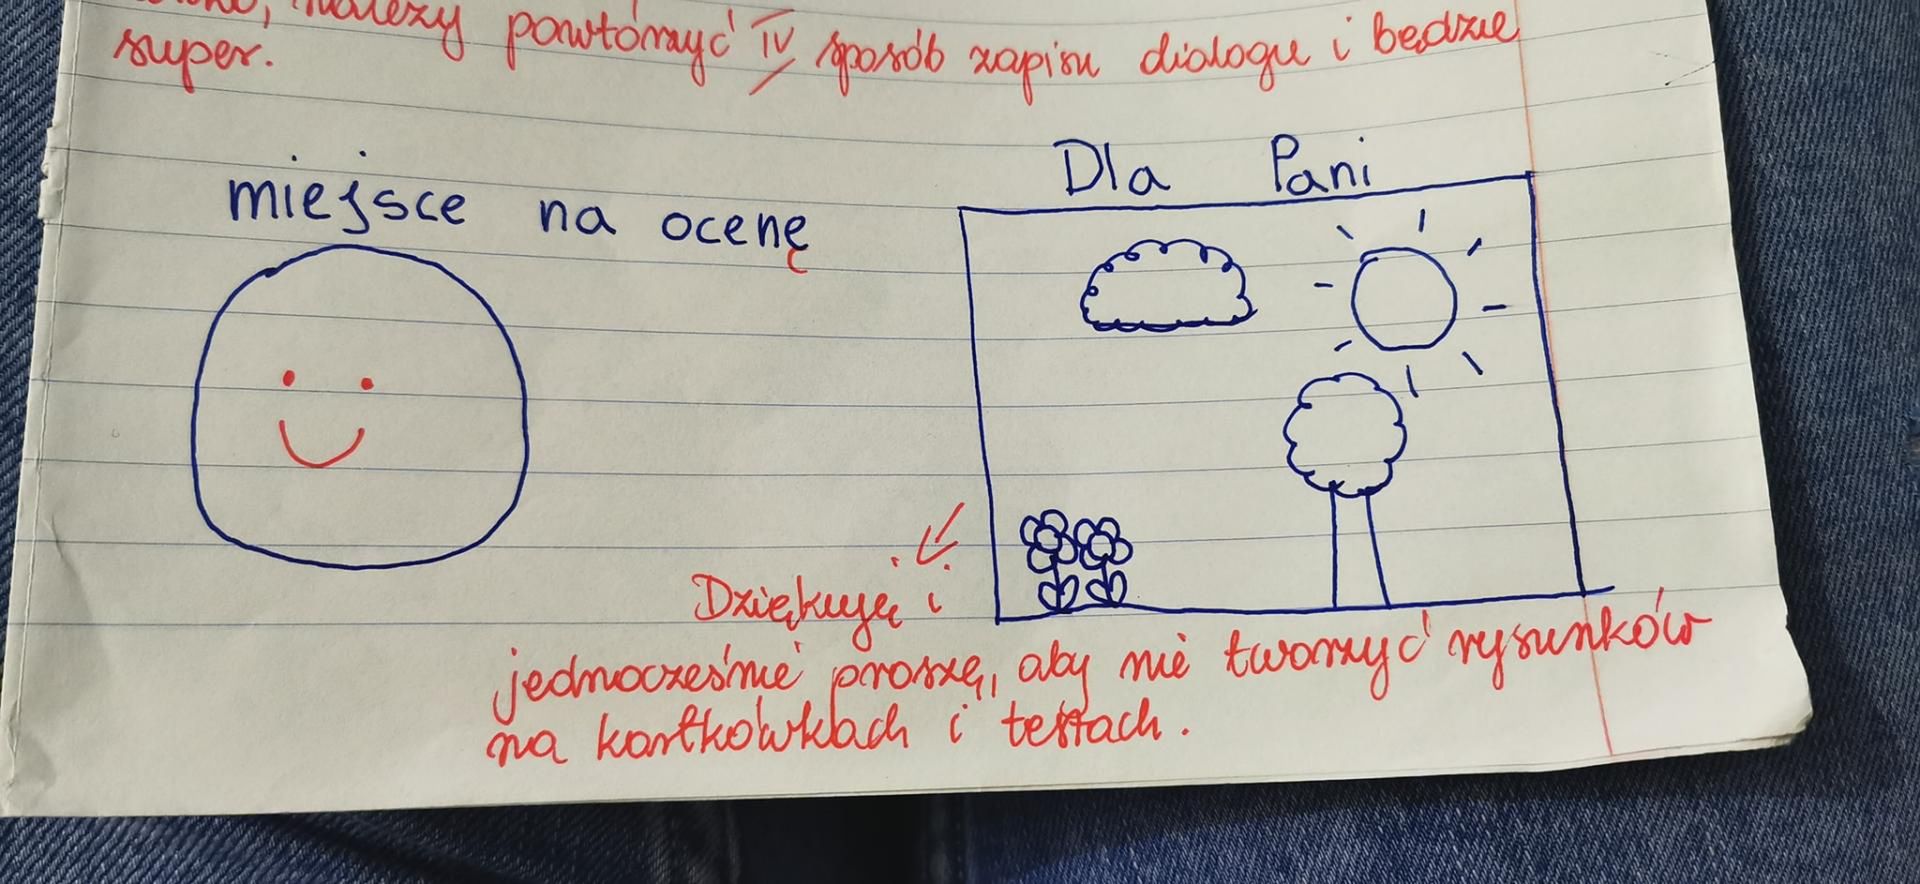 należy powtórzyć IV sposób zapisu dialogu i będzie
super.
miejsce na ocenę
Dla Pani
Dziękuję i
jednocześnie proszę, aby nie tworzyć rysunków
na kartkówkach i testach.